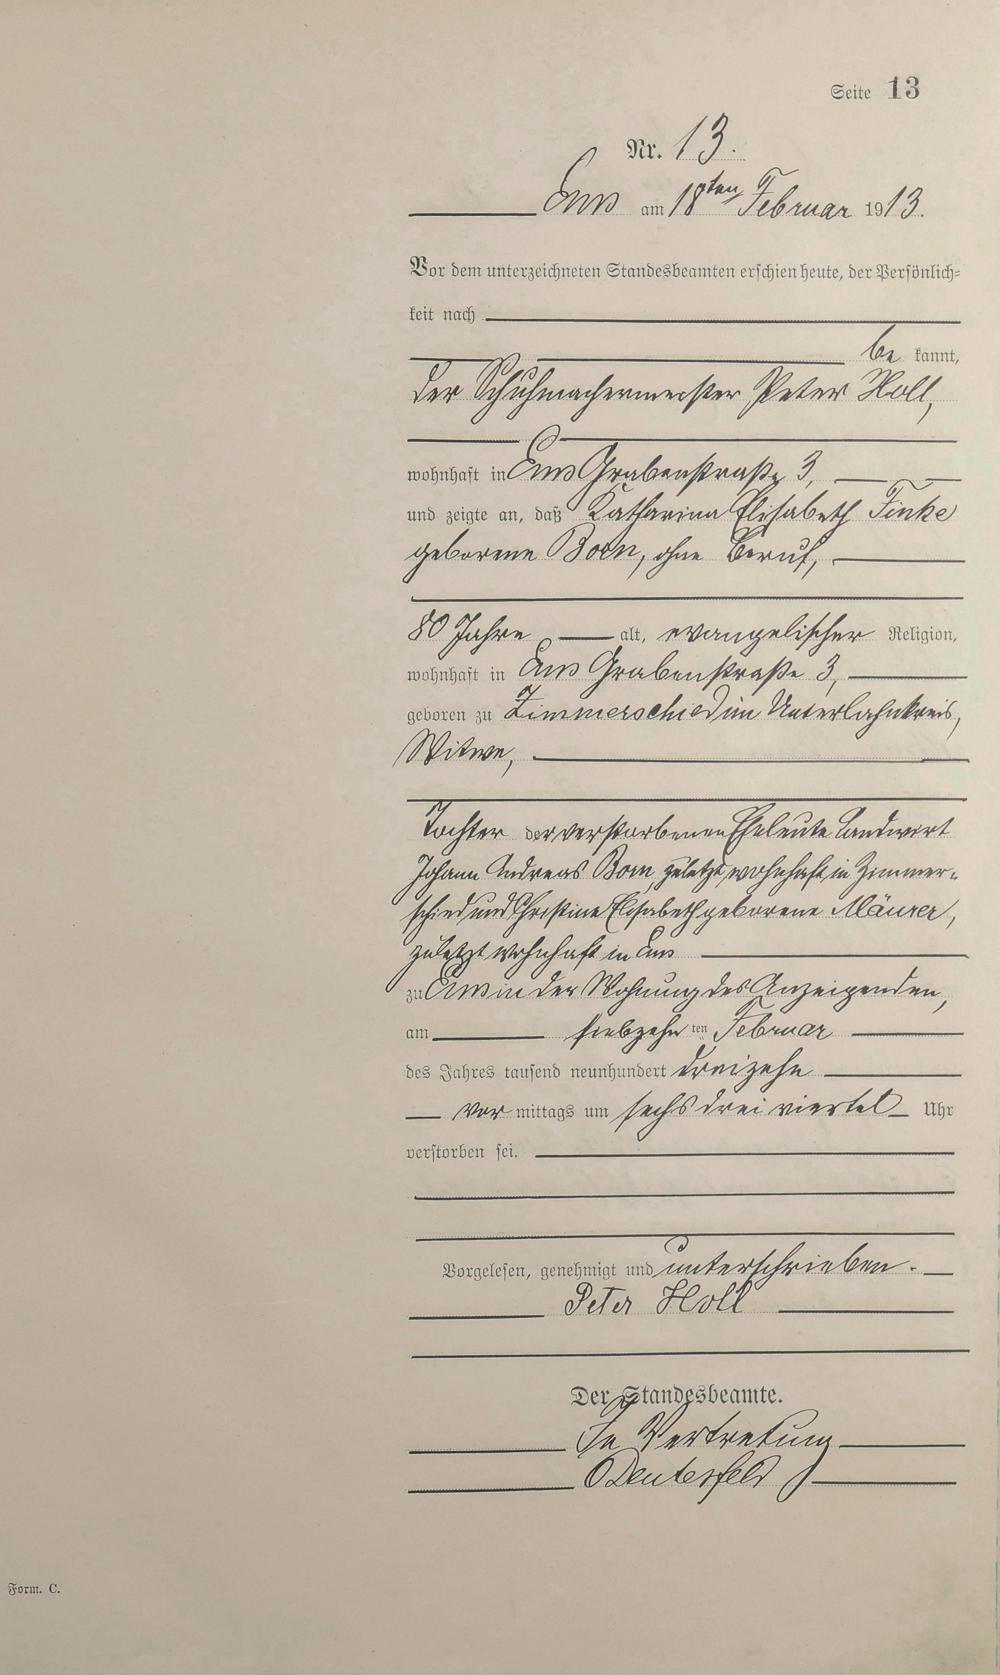 Seite 13
Nr. 13.
Ems am 18ten Februar 1913.
Vor dem unterzeichneten Standesbeamten erschien heute, der Persönlich=
keit nach
be kannt,
der Schuhmachermeister Peter Holl,
wohnhaft in Ems Grabenstraße 3,
und zeigte an, daß Katharina Elisabeth Finke
geborene Born, ohne Beruf,
80 Jahre alt, evangelischer Religion,
wohnhaft in Ems Grabenstraße 3,
geboren zu Zimmerschied im Unterlahnkreis,
Witwe,
Tochter der verstorbenen Eheleute Landwirt
Johann Andreas Born, zuletzt wohnhaft in Zimmer-
schied und Christine Elisabeth geborene Mäurer,
zuletzt wohnhaft in Ems
zu Ems in der Wohnung des Anzeigenden,
am siebzehn ten Februar
des Jahres tausend neunhundert dreizehn
vor mittags um sechs drei viertel Uhr
verstorben sei.
Vorgelesen, genehmigt und unterschrieben.
Peter Holl
Der Standesbeamte.
In Vertretung
Form. C.